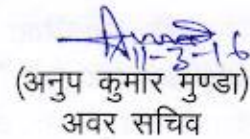 11-3-16
(अनुप कुमार मुण्डा)
अवर सचिव